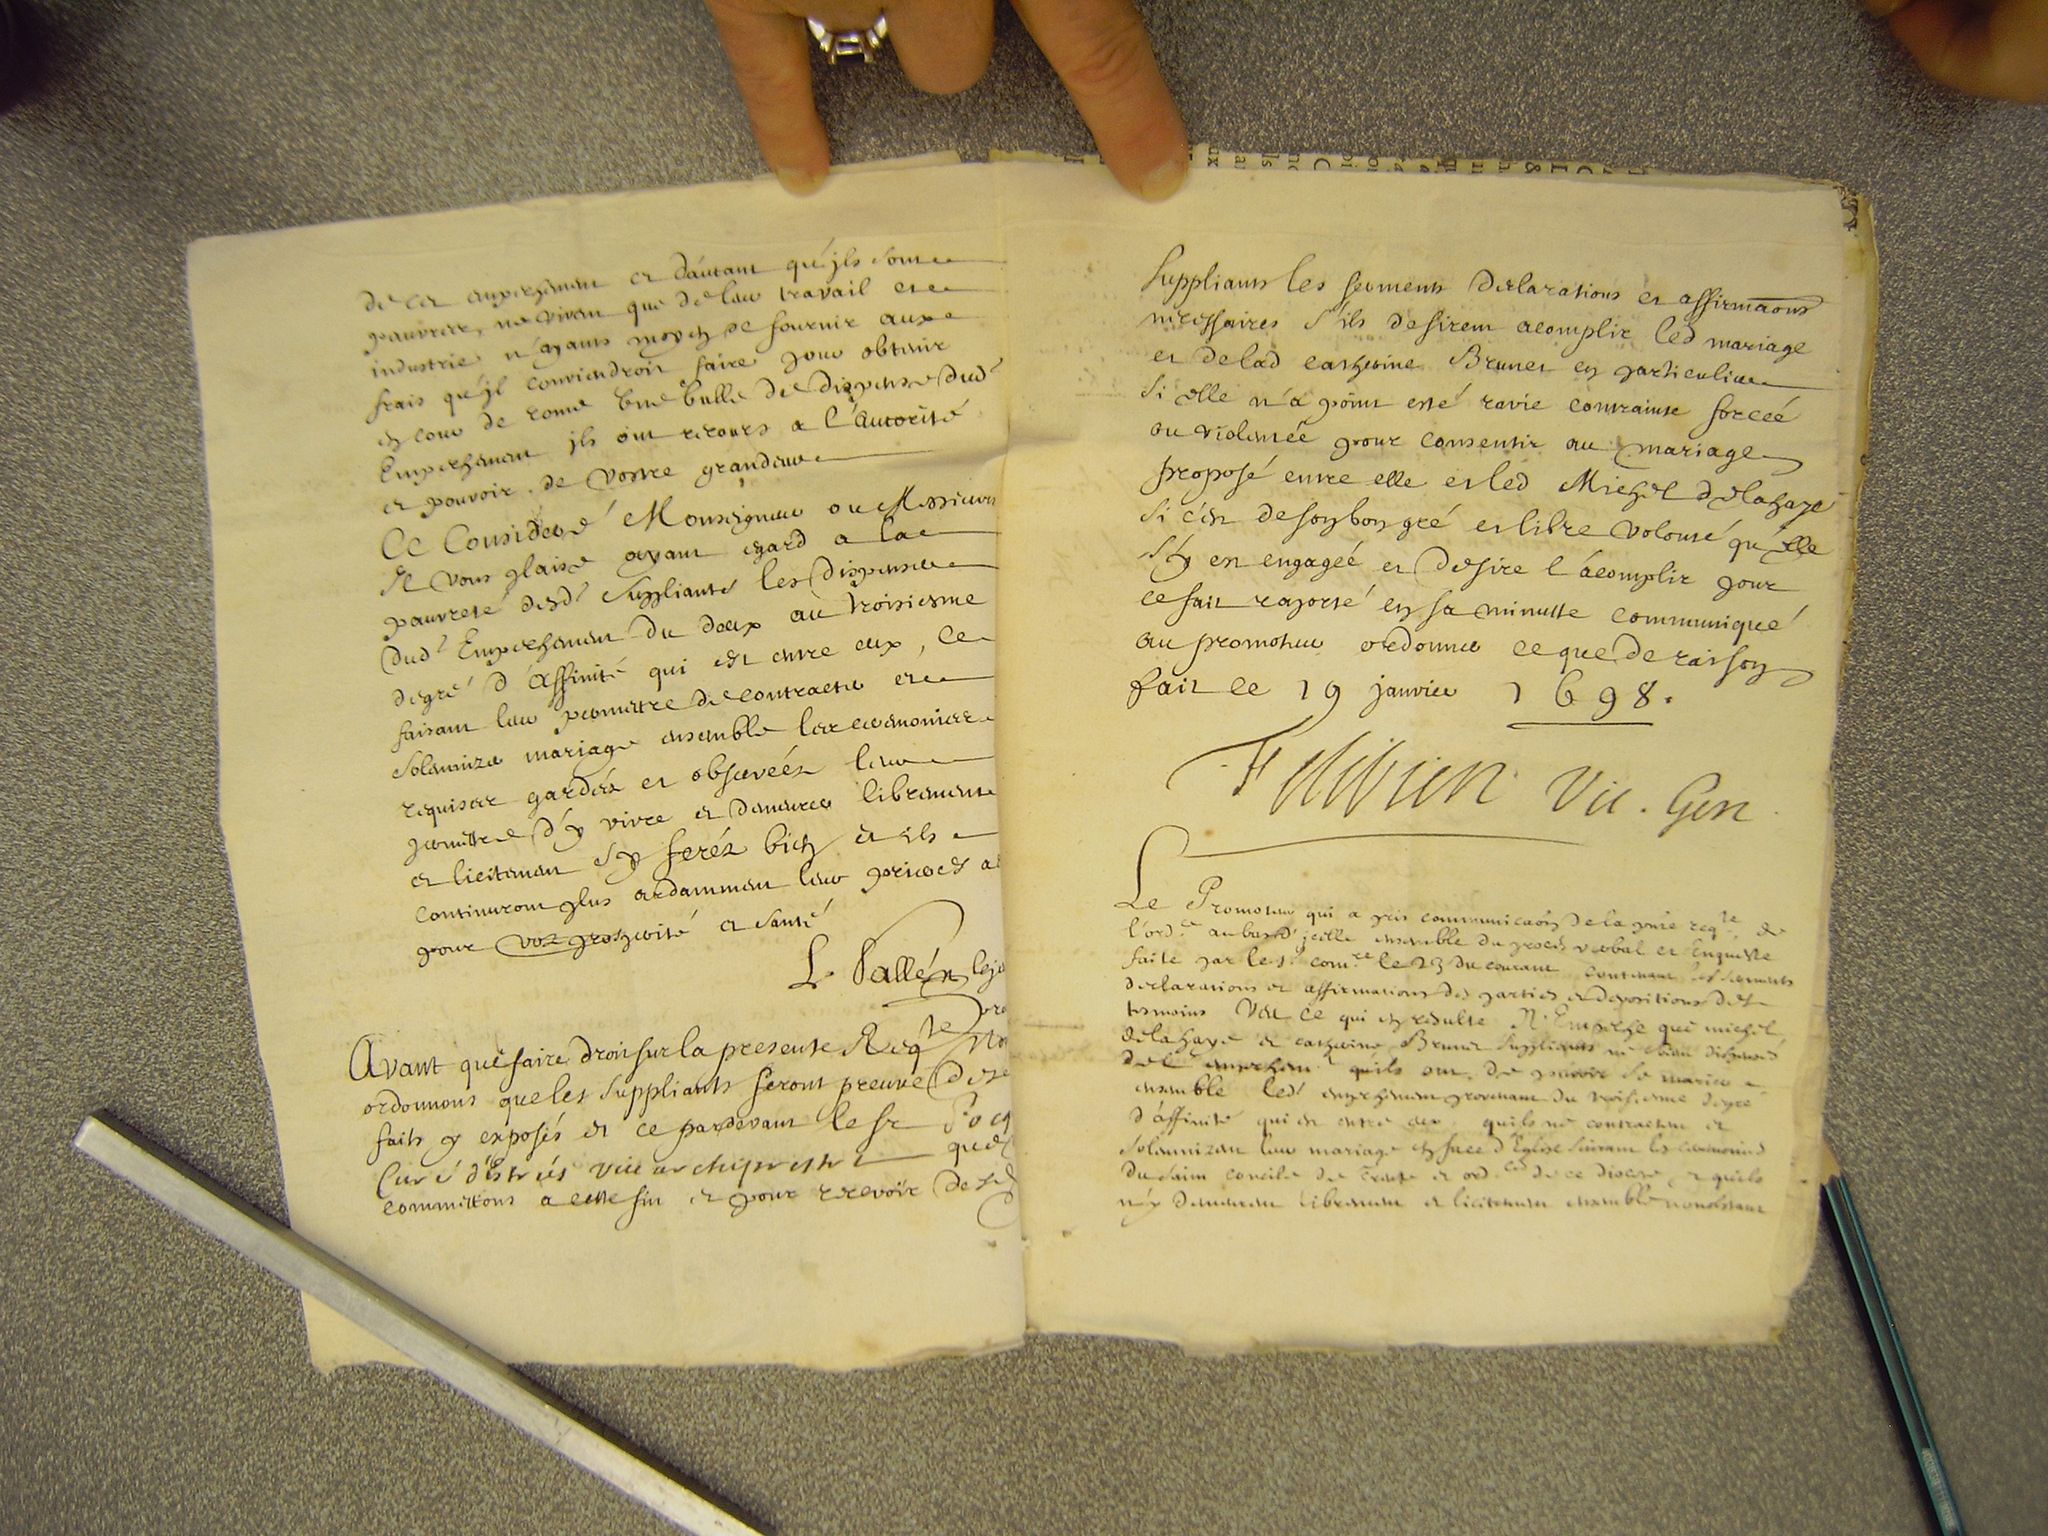 de cet empeschement et d'autant qu'jls sont
pauvres, ne vivent que de leur travail et
industrie, n'ayants moyen de fournir aux
frais qu'jl conviendroit faire pour obtenir
en cour de rome une bulle de dispense dud'
Empeschement jls ont recours a l'autorité
et pouvoir de vostre grandeur
Ce Consideré Monseigneur ou Messieurs
Il vous plaise ayant egard a la
pauvreté desd' suppliants les dispenser
dud' Empeschement du deux au troisiesme
degré d'affinité qui est entre eux, ce
faisant leur permettre de contracter et
solemnizer mariage ensemble les ceremonies
requises gardées et observées leur
permettre d'y vivre et demeurer librement
et licitement sy ferez bien et jls
continuront plus ardamment leur prieres a
pour voz prosperité et santé
L. Vallée
Avant que faire droit sur la presente Req.te
ordonnons que les suppliants feront preuve des
faits y exposés et ce pardevant le sr
Curé d'Estrées vice archiprestre que
commettons a cette fin et pour recevoir desd
suppliants les serments declarations et affirmaons
necessaires s'ils desirent acomplir led mariage
et de lad catherine Brunet en particulier
si elle n'a point esté ravie contrainte forceé
ou violentée pour consentir au mariage
proposé entre elle et led Michel delahaye
si c'est de son bon gré et libre volonté qu'elle
s'y est engageé et desire l'acomplir pour
ce fait raporté en sa minutte communiqué
au promoteur ordonner ce que de raison
fait ce 19 janvier 1698.
Felibien Vic. Gen
Le Promoteur qui a pris communicaon de la pnte req.te, de
l'ord.ce au bas d'jcelle ensemble du procès verbal et Enqueste
faite par led s.r com.re le 23 du courant contenant les serments
declarations et affirmations des parties et depositions des
tesmoins Veu ce qui en resulte N'Empesche que michel
delahaye et catherine Brunet suppliants ne soient dispensés
de l'empeschem.t qu'ils ont de pouvoir se marier
ensemble led' empeschement provenant du troisiesme degré
d'affinité qui est entre eux, qu'ils ne contractent et
solemnizent leur mariage en face d'Eglise suivant les ceremonies
du saint concile de Trente et ord.ces de ce diocese et qu'ils
n'y demeurent librement et licitement ensemble nonobstant